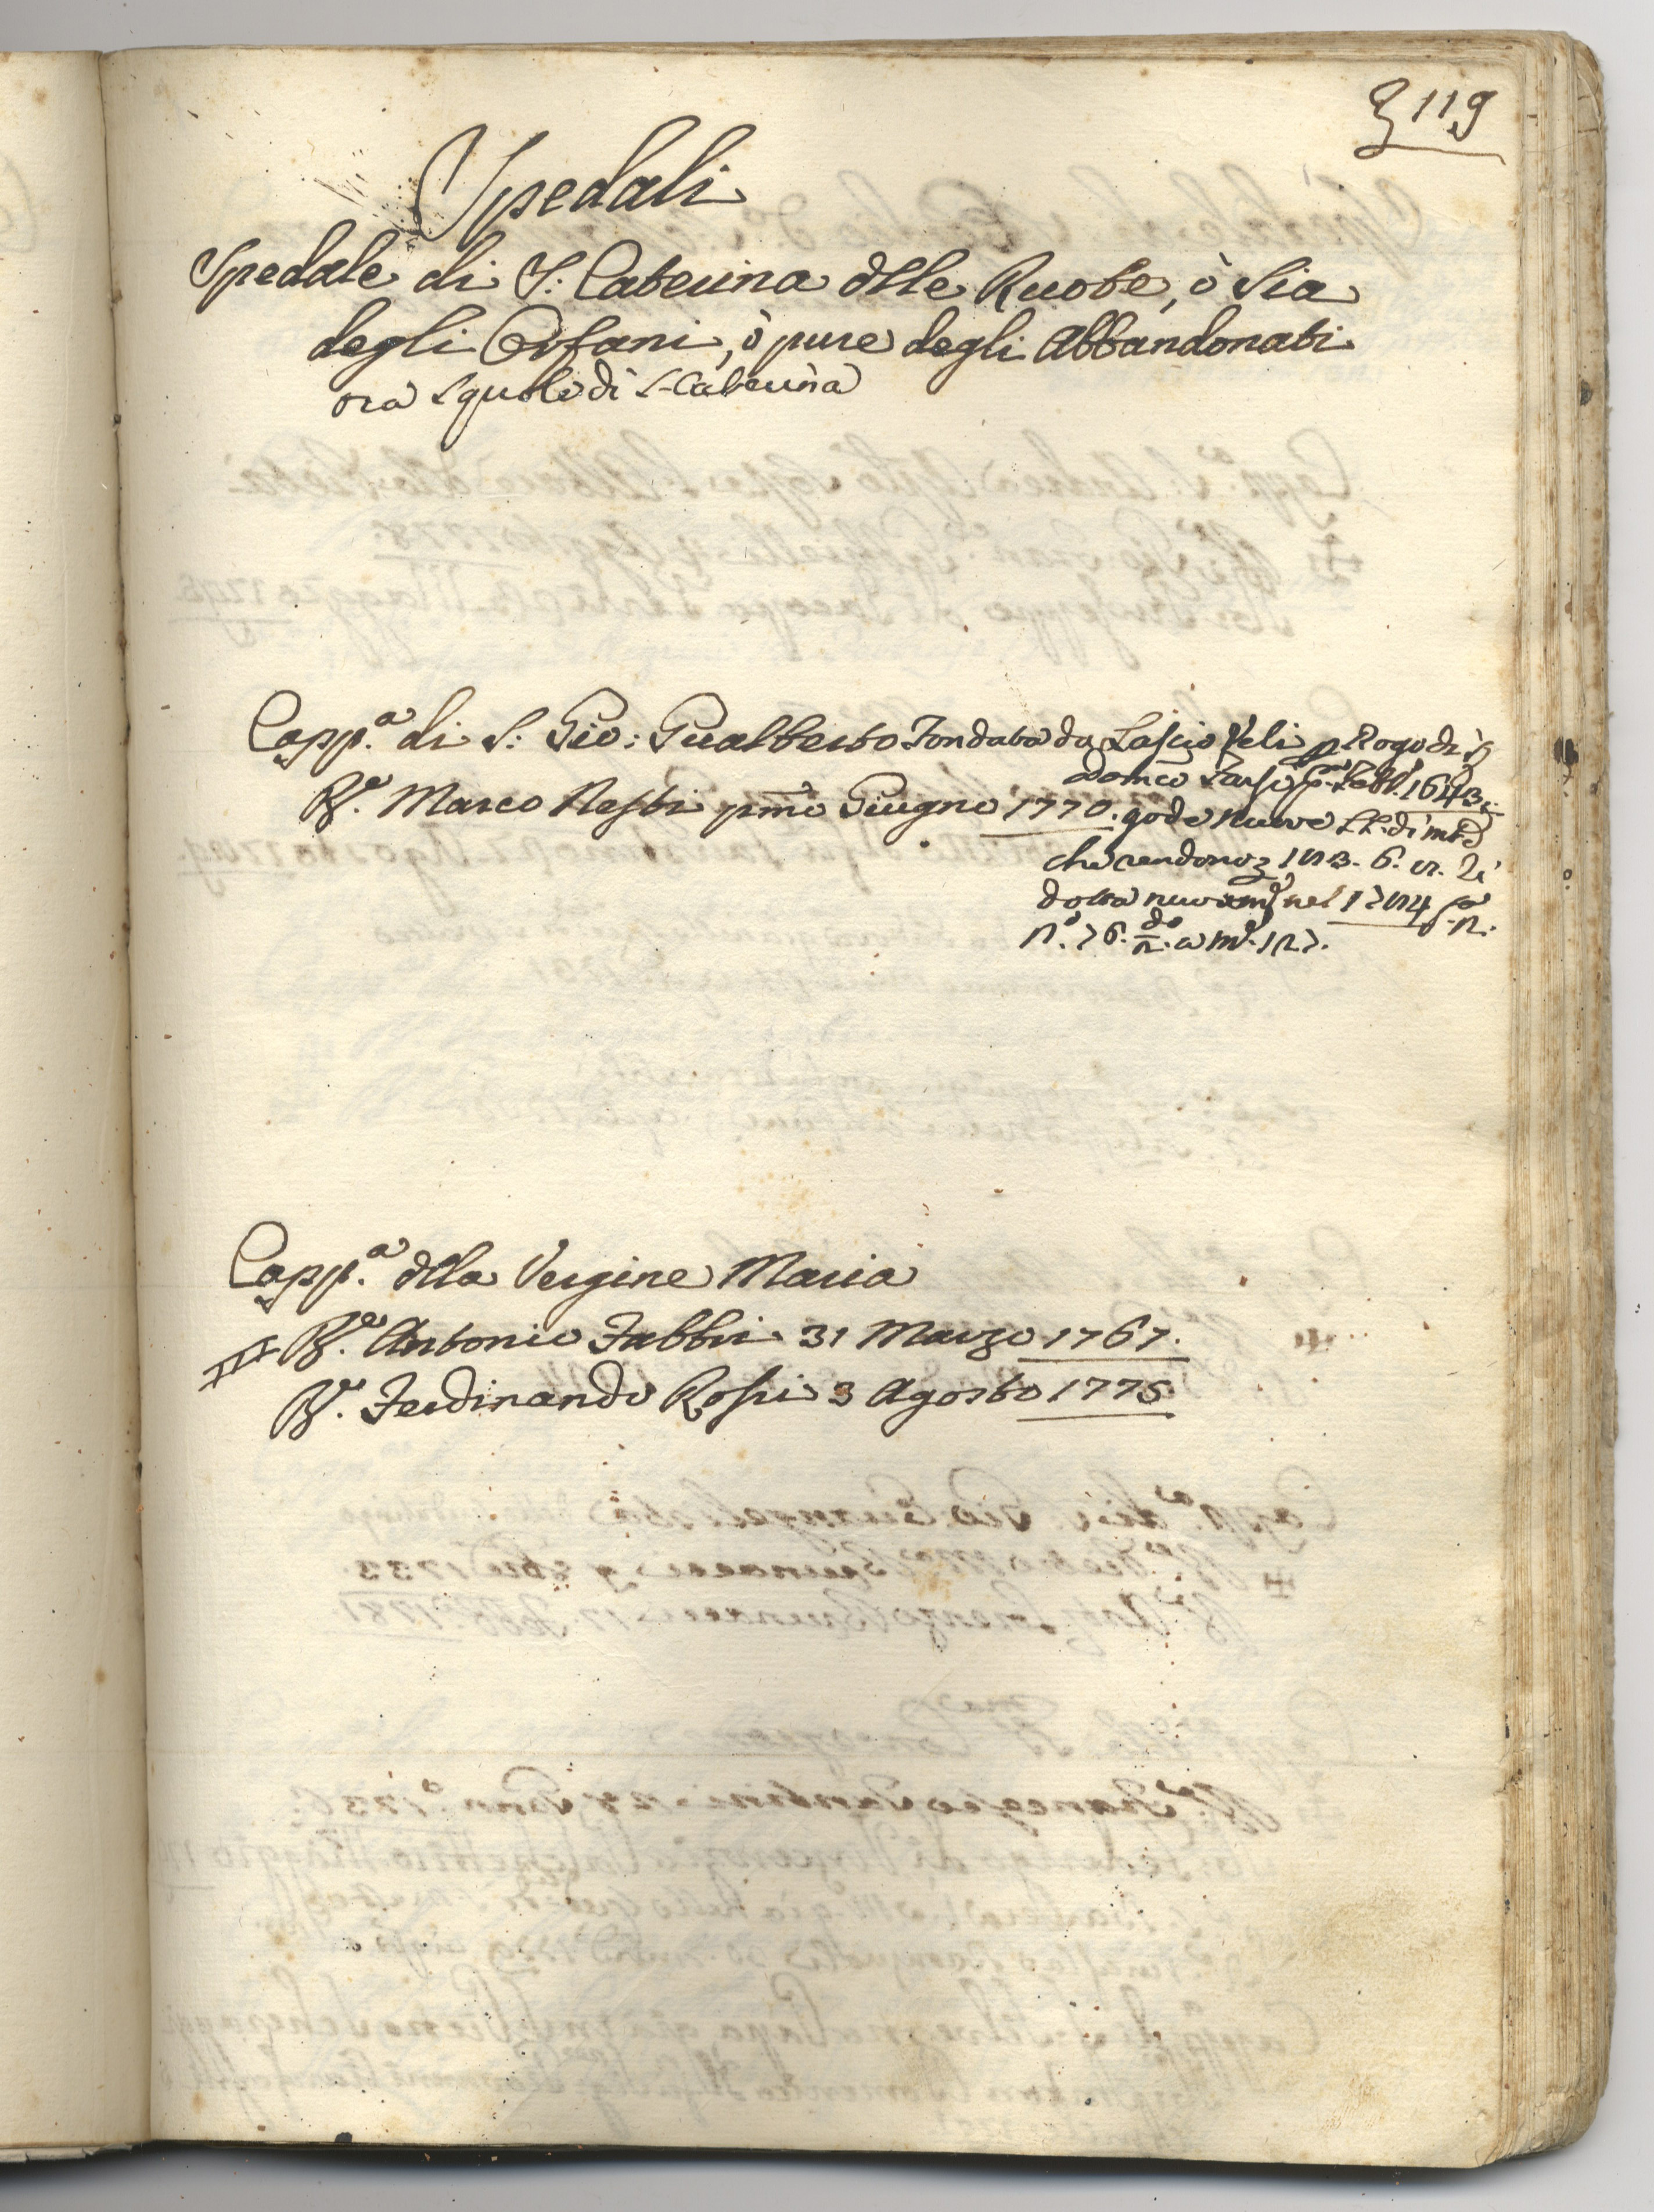 119
Spedali
Spedale di S: Caterina dlle Ruote, ò sia
degli Orfani, ò pure degli Abbandonati
ora squole di S. Caterina
Capp.a di S: Gio: Gualberto Fondata da Lascio Feli p Rogo di
Domco 1643
R.e Marco Nesti pmo Giugno 1770. gode nuove LL. di
che rendono 6.
dotta nuovamte nel
n.o 76. do a
Capp.a dlla Vergine Maria
R.e Antonio Fabbri 31 Marzo 1767.
R.e Ferdinando Rossi 3 Agosto 1775